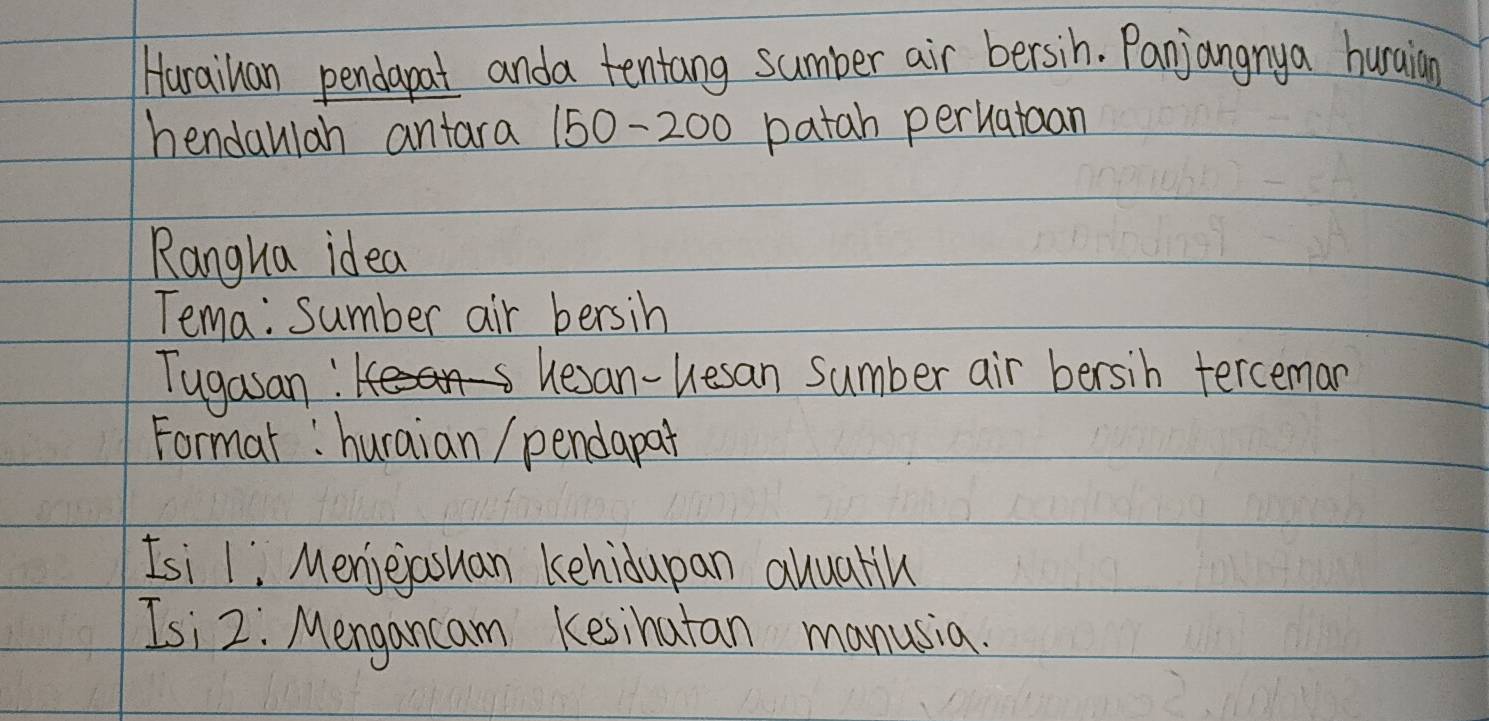 Huraikan pendapat anda tentang sumber air bersih. Panjangnya huraian
hendaklah antara 150-200 patah perkataan
Rangka idea
Tema: Sumber air bersih
Tugasan: Kesan s kesan-kesan sumber air bersih tercemar
Format: huraian/pendapat
Isi 1: Menjejaskan kehidupan akuatik
Isi 2: Mengancam kesihatan manusia.